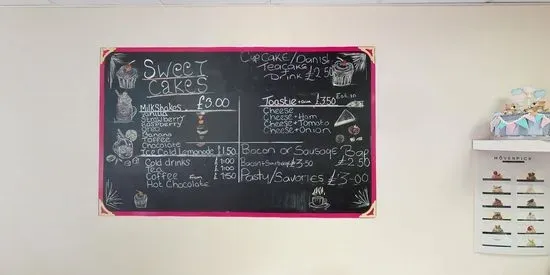 SWEET
CAKES
Milkshakes £3.00
Vanilla
Strawberry
Raspberry
Oreo
Banana
Toffee
Chocolate
Ice Cold Lemonade £1.50
Cold drinks £1:00
Tea £1:00
Coffee from £1:50
Hot Chocolate
CUPCAKE/Danish
Teacake
Drink £2.50
Toastie £3.50 Eat in
Cheese
Cheese+Ham
Cheese+Tomato
Cheese+Onion
Bacon or Sausage Bap
Bacon+Sausage £3.50 £2.50
Pasty/Savories £3.00
MÖVENPICK